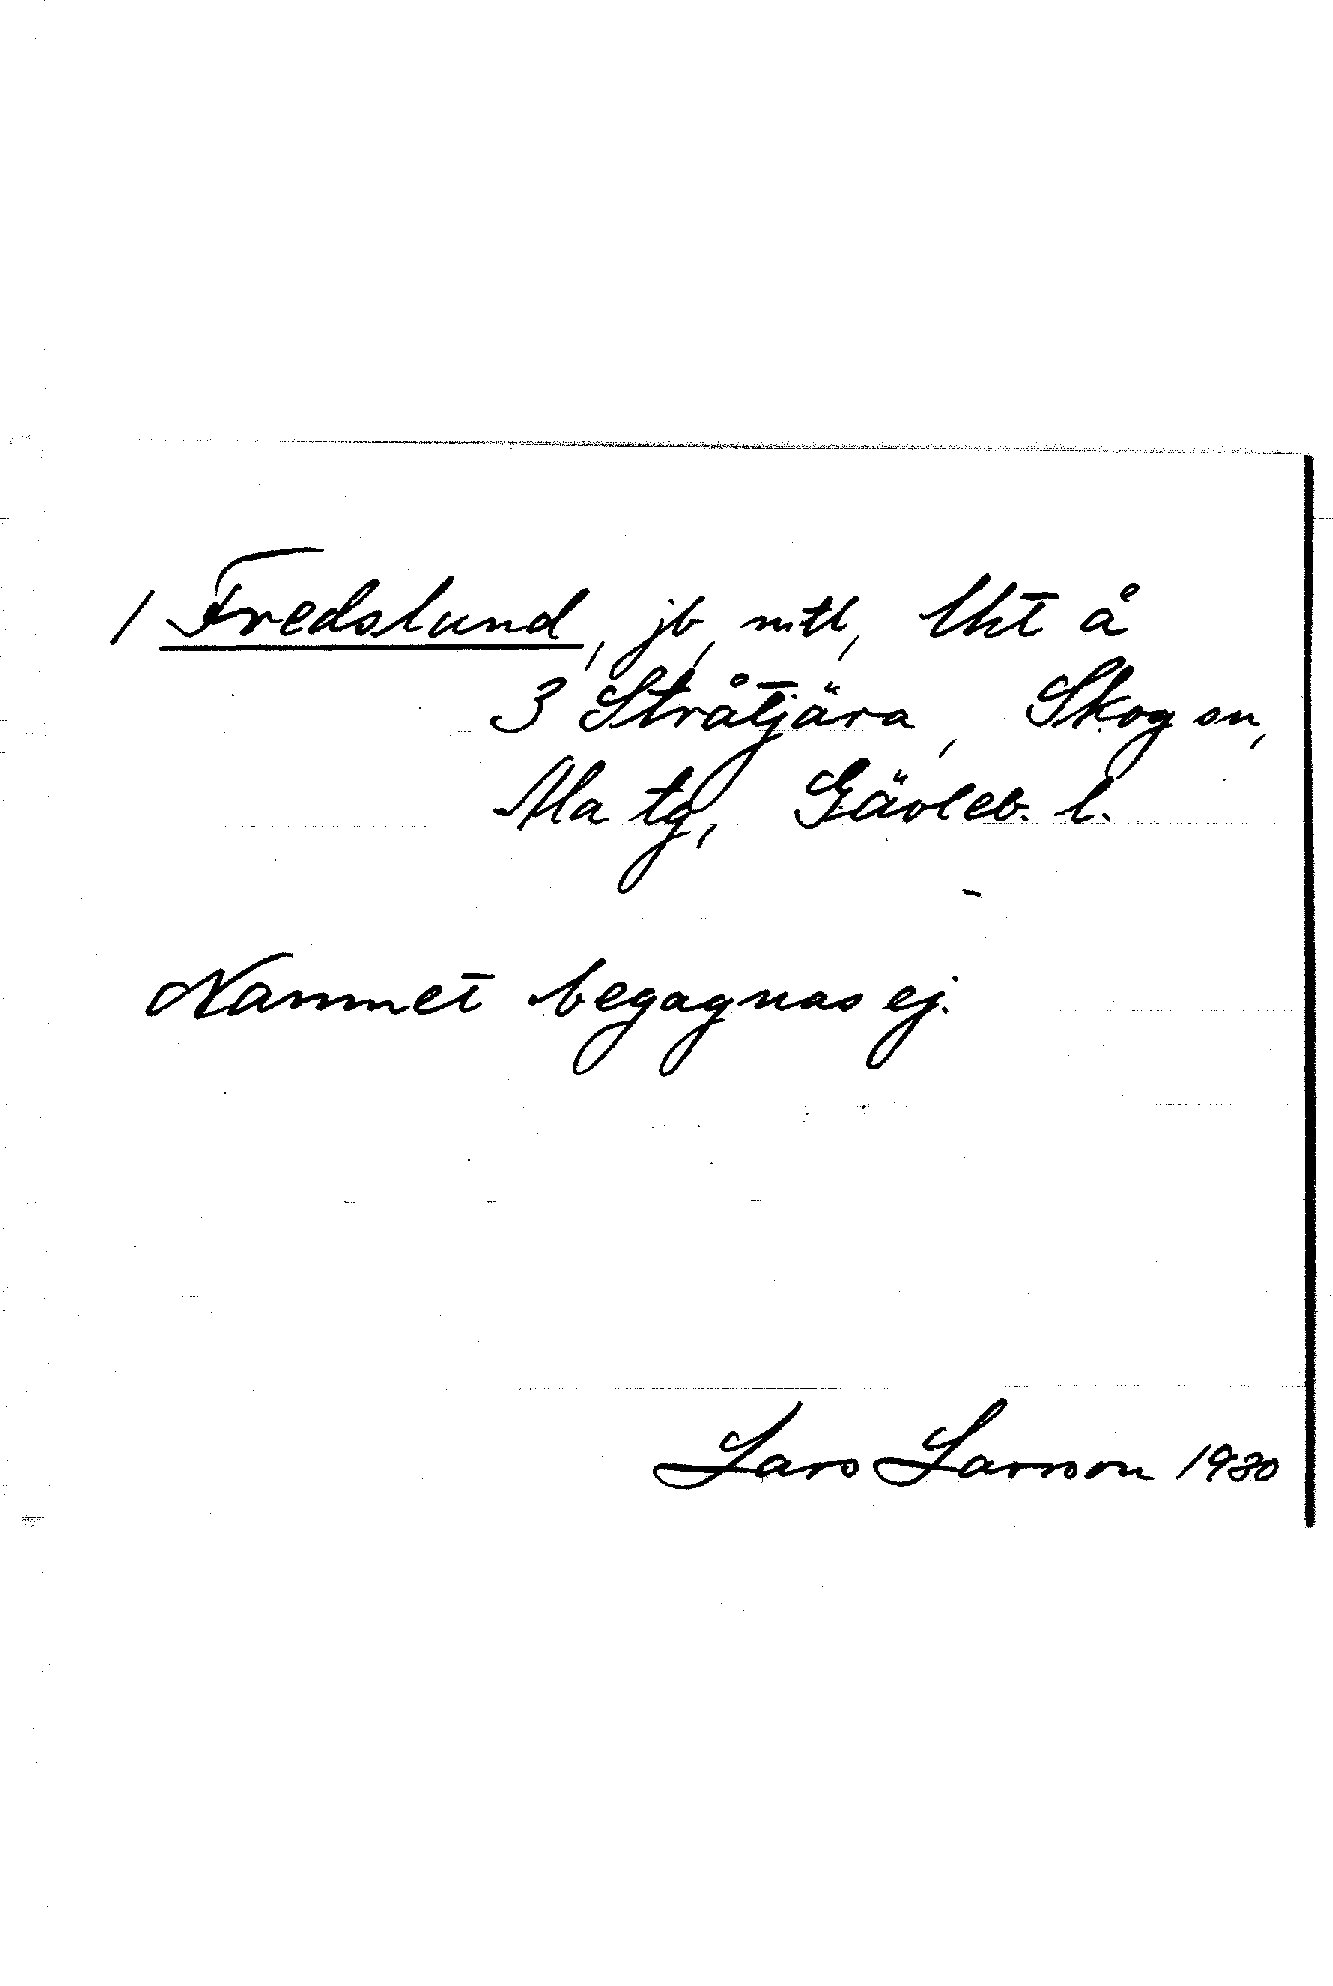 1 Fredslund, jb, mtl, lht å
3 Stråtjära, Skog sn,
Ala tg, Gävleb. l.
Namnet begagnas ej.
Lars Larsson 1930